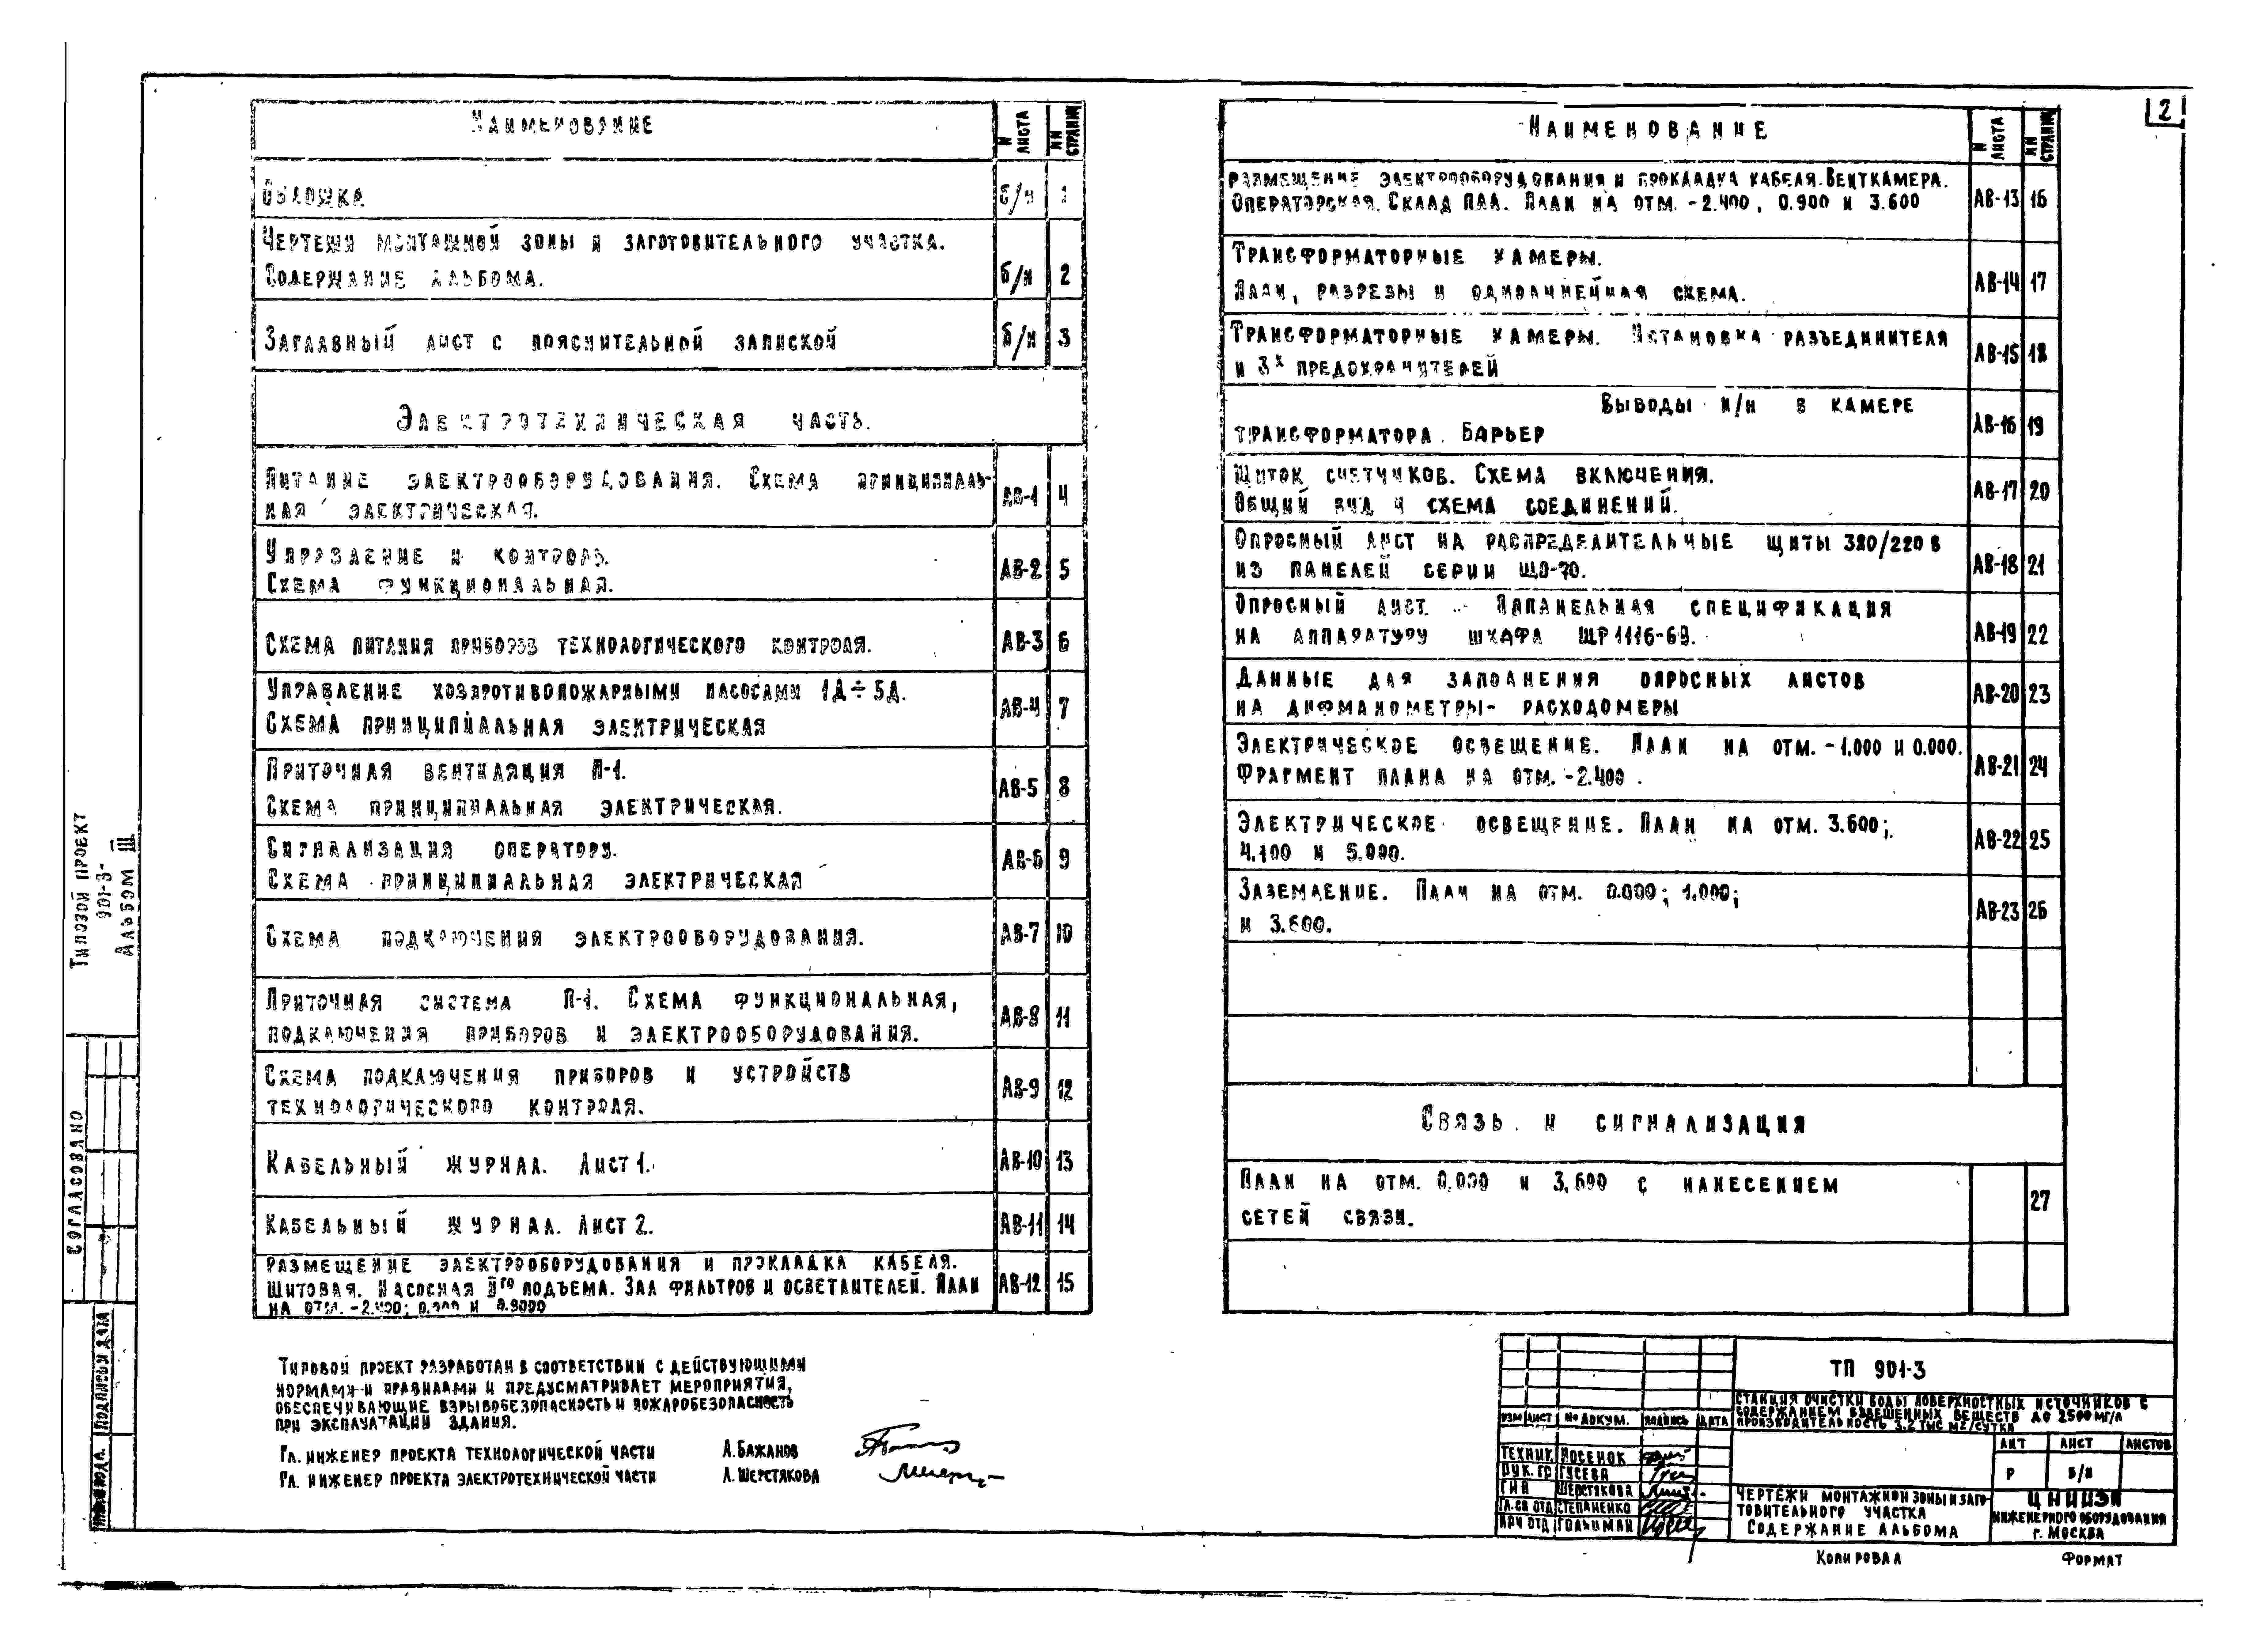 2
Наименование
N листа
NN страниц
Обложка б/н 1
Чертежи монтажной зоны и заготовительного участка.
Содержание альбома. б/н 2
Заглавный лист с пояснительной запиской б/н 3
Электротехническая часть.
Питание электрооборудования. Схема принципиаль-
ная электрическая. АВ-1 4
Управление и контроль.
Схема функциональная. АВ-2 5
Схема питания приборов технологического контроля. АВ-3 6
Управление хозпротивопожарными насосами 1Д÷5Д.
Схема принципиальная электрическая АВ-4 7
Приточная вентиляция П-1.
Схема принципиальная электрическая. АВ-5 8
Сигнализация оператору.
Схема принципиальная электрическая АВ-6 9
Схема подключения электрооборудования. АВ-7 10
Приточная система П-1. Схема функциональная,
подключения приборов и электрооборудования. АВ-8 11
Схема подключения приборов и устройств
технологического контроля. АВ-9 12
Кабельный журнал. Лист 1. АВ-10 13
Кабельный журнал. Лист 2. АВ-11 14
Размещение электрооборудования и прокладка кабеля.
Щитовая. Насосная IIго подъема. Зал фильтров и осветлителей. План
на отм. -2.400; 0.000 и 0.9000 АВ-12 15
Наименование
N листа
NN страниц
Размещение электрооборудования и прокладка кабеля. Венткамера.
Операторская. Склад ПАА. План на отм. -2.400, 0.900 и 3.600 АВ-13 16
Трансформаторные камеры.
План, разрезы и однолинейная схема. АВ-14 17
Трансформаторные камеры. Установка разъединителя
и 3х предохранителей АВ-15 18
Выводы н/н в камере
трансформатора. Барьер АВ-16 19
Щиток счетчиков. Схема включения.
Общий вид и схема соединений. АВ-17 20
Опросный лист на распределительные щиты 380/220 в
из панелей серии ЩО-70. АВ-18 21
Опросный лист. Попанельная спецификация
на аппаратуру шкафа ШР1116-69. АВ-19 22
Данные для заполнения опросных листов
на дифманометры- расходомеры АВ-20 23
Электрическое освещение. План на отм. -1.000 и 0.000.
Фрагмент плана на отм. -2.400. АВ-21 24
Электрическое освещение. План на отм. 3.600;
4.100 и 5.000. АВ-22 25
Заземление. План на отм. 0.000; 1.000;
и 3.600. АВ-23 26
Связь и сигнализация
План на отм. 0,000 и 3,600 с нанесением
сетей связи. 27
Типовой проект
901-3-
Альбом III
Согласовано
Подпись и дата
Типовой проект разработан в соответствии с действующими
нормами и правилами и предусматривает мероприятия,
обеспечивающие взрывобезопасность и пожаробезопасность
при эксплуатации здания.
Гл. инженер проекта технологической части А. Бажанов
Гл. инженер проекта электротехнической части Л. Шерстякова
ТП 901-3
Станция очистки воды поверхностных источников с
содержанием взвешенных веществ до 2500 мг/л
производительность 3.2 тыс м2/сутки
Изм Лист № докум. Подпись Дата
Техник Носенок
Рук. гр Гусева
ГИП Шерстякова
Гл. сп отд Степаненко
Нач отд Гольцман
Лит Лист Листов
Р б/н
Чертежи монтажной зоны и заго-
товительного участка
Содержание альбома
ЦНИИЭП
инженерного оборудования
г. Москва
Копировал Формат